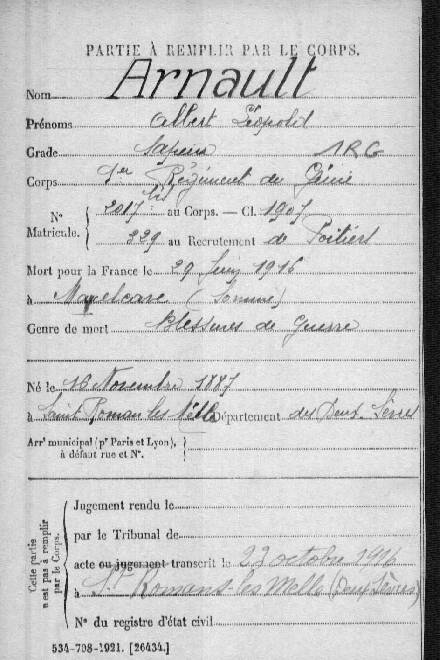 PARTIE À REMPLIR PAR LE CORPS.
Nom Arnault
Prénoms Albert Léopold
Grade Sapeur 1RG
Corps 1er Régiment de Génie
N° Matricule. 2017 bis au Corps. — Cl. 1907
329 au Recrutement de Poitiers
Mort pour la France le 29 Juin 1916
à Marcelcave (Somme)
Genre de mort Blessures de Guerre
Né le 16 Novembre 1887
à Saint Roman les Melle Département des Deux-Sèvres
Arr' municipal (p' Paris et Lyon),
à défaut rue et N°.
Cette partie
n'est pas à remplir
par le Corps.
Jugement rendu le
par le Tribunal de
acte ou jugement transcrit le 23 octobre 1916
à St Romans-les-Melle (Deux Sèvres)
N° du registre d'état civil
534-708-1921. [26434.]